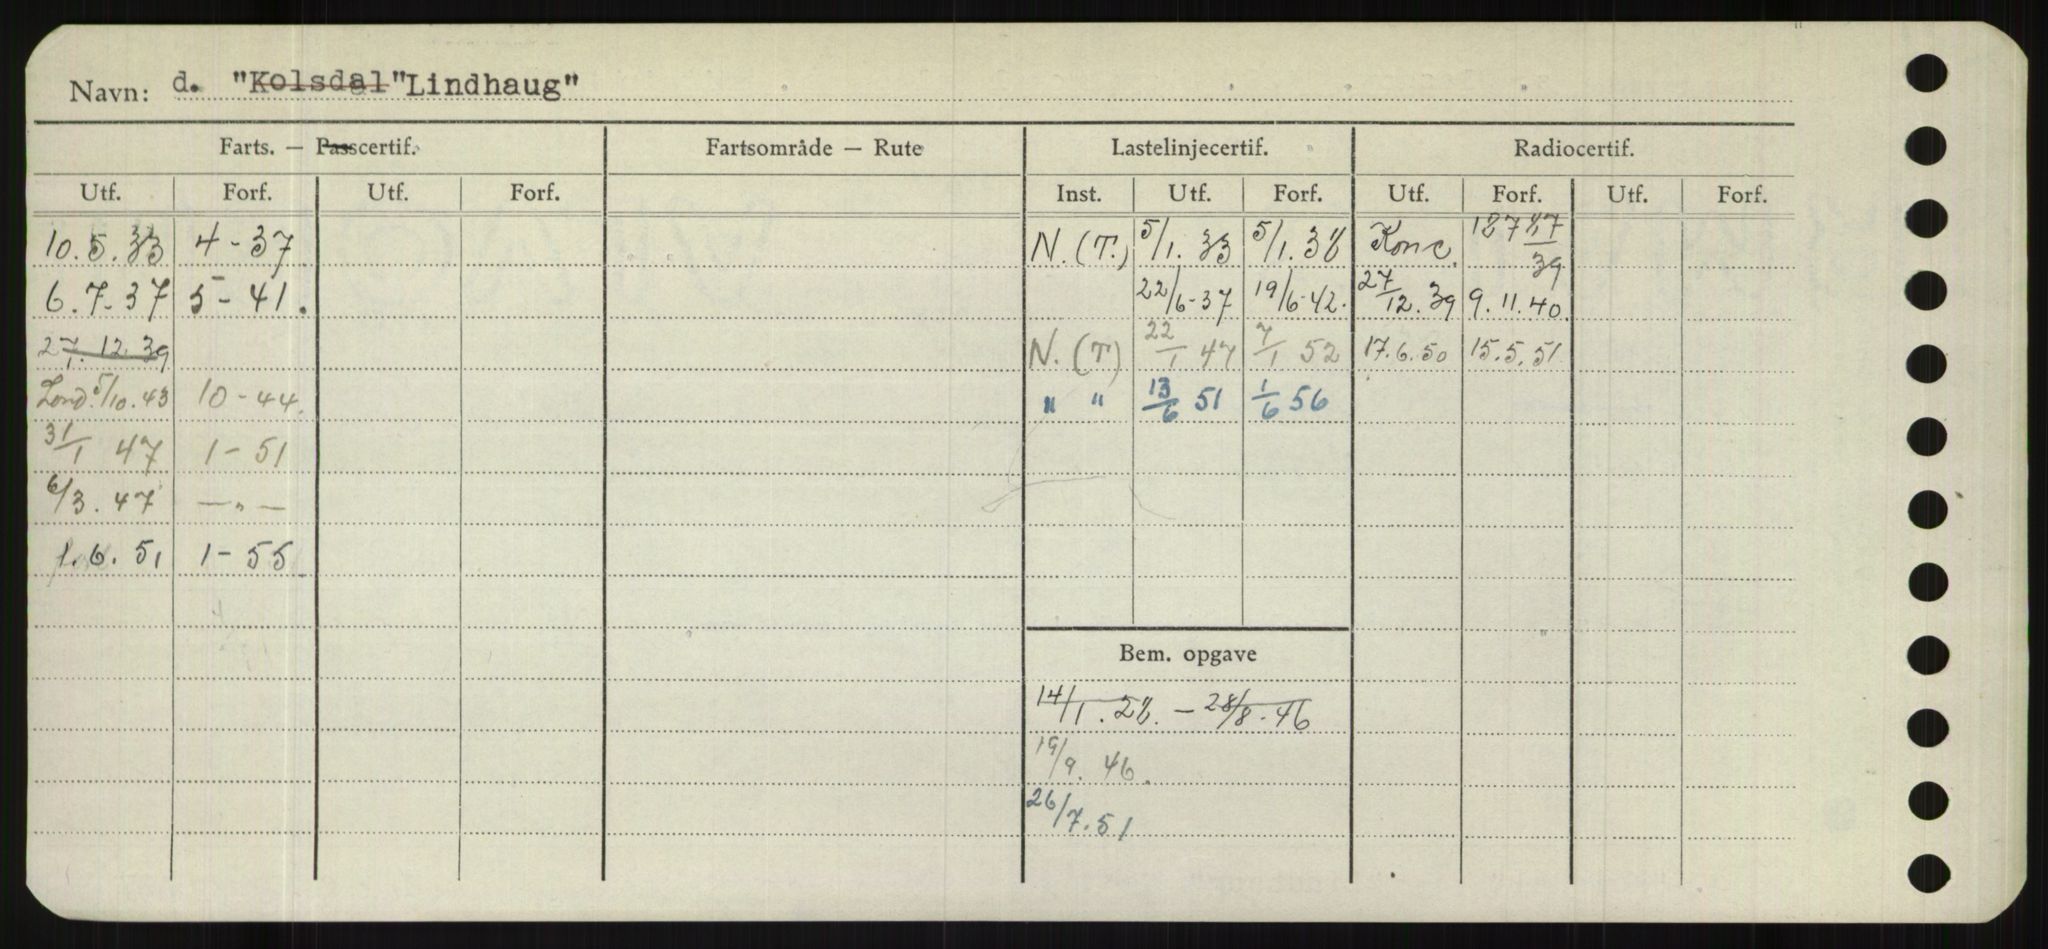 Navn: d. "Kolsdal" "Lindhaug"
Farts. — Passcertif. Fartsområde — Rute Lastelinjecertif. Radiocertif.
Utf. Forf. Utf. Forf. Inst. Utf. Forf. Utf. Forf. Utf. Forf.
10.5.33 4-37 N.(T.) 5/1.33 5/1.38 Konc. 39
6.7-37 5-41. 22/6-37 19/6-42. 27/12.39 9.11.40.
27/1.12.39 N.(T) 22/1 47 7/1 52 17.6.50 15.5.51
Lond. 5/10.43 10-44. " " 13/6 51 1/6 56
31/1 47 1-51
6/3.47 —"—
1.6.51 1-55.
Bem. opgave
14/1.28. - 28/8.46
19/9.46.
26/7.51